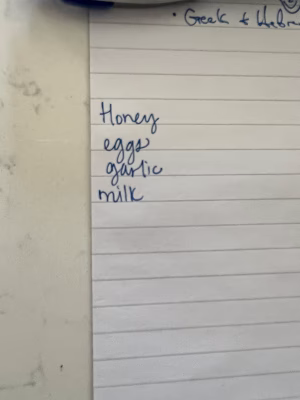 • Greek &
Honey
eggs
garlic
milk